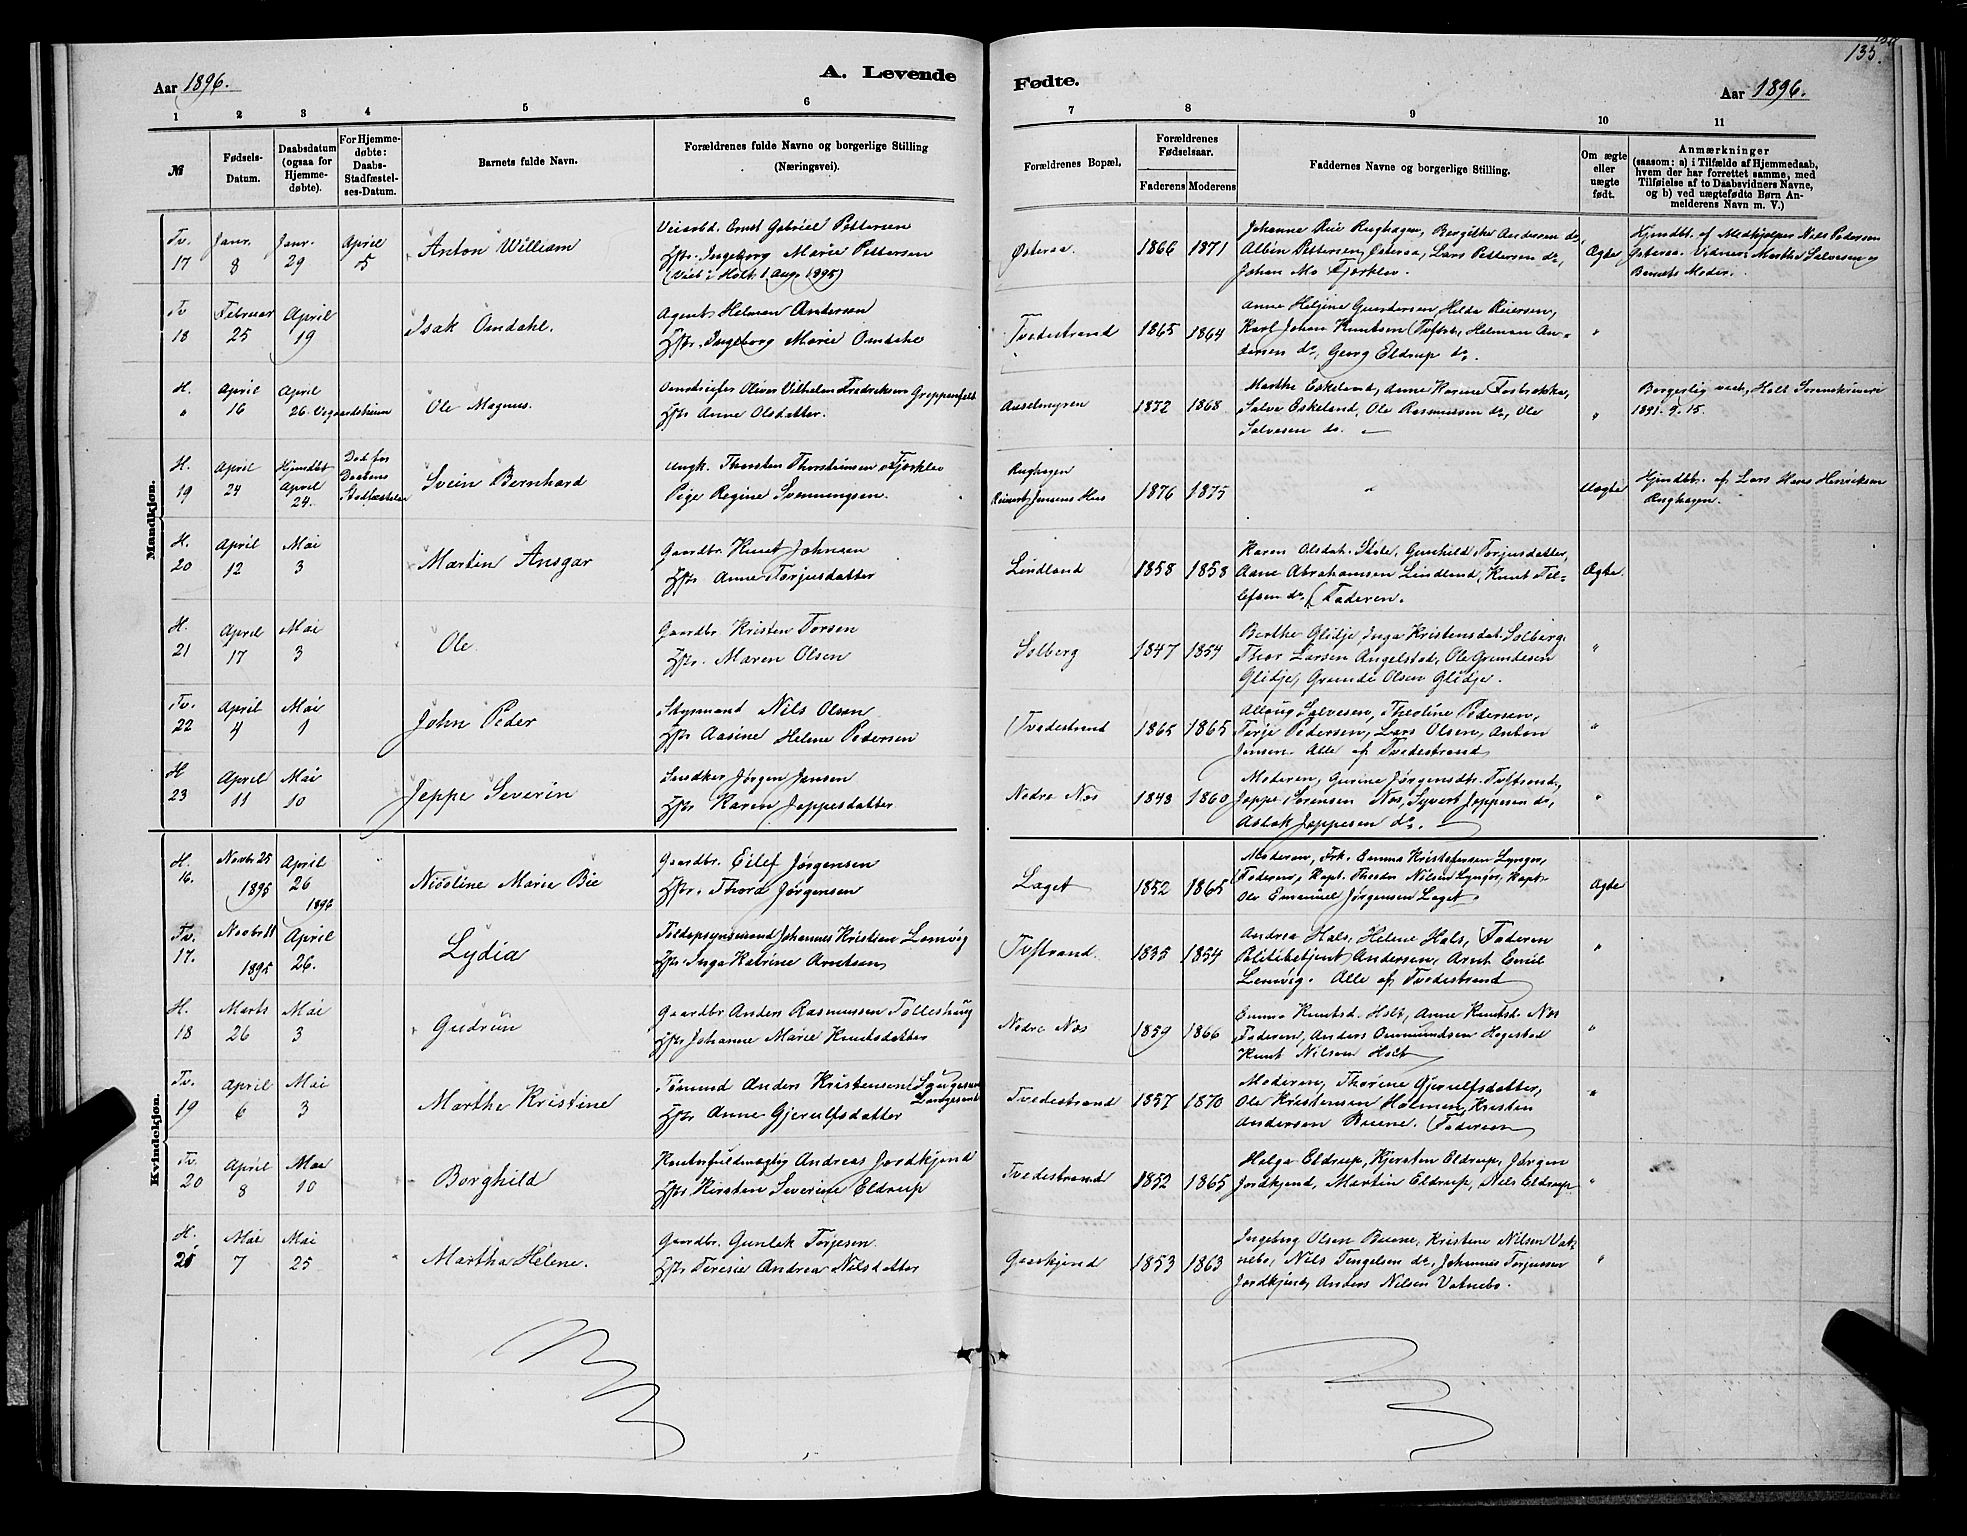 135.
Aar 1896.
A. Levende Fødte.
Aar 1896.
1 2 3 4 5 6 7 8 9 10 11
№
Fødsels-Datum.
Daabsdatum (ogsaa for Hjemme-døbte).
For Hjemme-døbte: Daabs-Stadfæstel-ses-Datum.
Barnets fulde Navn.
Forældrenes fulde Navne og borgerlige Stilling
(Næringsvei).
Forældrenes Bopæl,
Forældrenes Fødselsaar.
Faderens Moderens
Faddernes Navne og borgerlige Stilling.
Om ægte eller uægte født.
Anmærkninger
(saasom: a) i Tilfælde af Hjemmedaab,
hvem der har forrettet samme, med
Tilføielse af to Daabsvidners Navne,
og b) ved uægtefødte Børn An-
melderens Navn m. V.)
Mandkjøn.
Tv. 17
Janr. 8
Janr. 29
April 5
Anton William
Veiarbd. Ernst Gabriel Pettersen
Hstr. Ingeborg Marie Pettersen
(Viet i Holt 1 Aug. 1895)
Østeraa.
1866 1871
Albin Pettersen, Østeraa, Lars Pettersen do,
Ægte
Hjmdbt. af Medhjelper Nils Pedersen
Østeraa. Vidner: Marthe Salvesen og
Barnets Moder.
Tv 18
Februar 25
April 19
Isak Omdahl.
Agent Helman Andersen
Hstr. Ingeborg Marie Omdahl
Tvedestrand
1865 1864
Anne Helgine Gundersen, Helda Reiersen,
Karl Johan Knutsen Tvstr., Helman An-
dersen do, Georg Eldrup do.
"
H. "
April 16
April 26. Vegaardsheim
Ole Magnus.
Oliver Vilhelm Fredriksen Greppenfelt
Hstr Anne Olsdatter.
1872 1868
Marthe Eskeland, Anne Karine Fosbrække,
Salve Eskeland, Ole Rasmussen do, Ole
Salvesen do.
"
Borgerlig viet, Holt Sorenskriveri
1891. 9/15.
H. 19
April 24
Hjmdbt April 24.
Død før Daabens Stadfæstelse
Svein Bernhard
Ungk. Thorsten Thorsteinsen Fjærklev
Pige Regine Svenningsen.
Rughagen
1876 1875
"
Uægte
Hjmdbt. af Lars Hans Henriksen
Rughagen.
H. 20
April 12
Mai 3
Martin Ansgar
Gaardbr. Knut Johnsen
Hstr. Anne Torjusdatter
Lindland
1858 1858
Karen Olsdat. Stole, Gunhild Torjusdatter,
Aane Abrahamsen Lindland, Knut Til-
lefsen do, Faderen.
Ægte
H. 21
April 17
Mai 3
Ole
Gaardbr. Kristen Torsen
Hstr. Maren Olsen
Solberg
1847 1854
Berthe Glidje, Inga Kristensdat. Solberg,
Thor Larsen Angelstad, Ole Grundesen
Glidje, Grunde Olsen Glidje.
"
Tv. 22
April 4
Mai 1
John Peder
Styrmand Nils Olsen
Hstr Aasine Helene Pedersen
Tvedestrand
1865 1865
Allaug Salvesen, Theoline Pedersen,
Terje Pedersen, Lars Olsen, Anton
Jensen. Alle af Tvedestrand
"
H 23
April 11
Mai 10
Jeppe Severin
Snedker Jørgen Jensen
Hstr Karen Jeppesdatter
Nedre Næs
1848 1860
Moderen, Gurine Jørgensdtr. Tvstrand,
Jeppe Sørensen Næs, Syvert Jeppesen do,
Aslak Jeppesen do.
"
Kvindekjøn.
H. 16.
Novbr 25 1895
April 26 1896
Nicoline Marie Bie
Gaardbr. Eilef Jørgensen
Hstr. Thora Jørgensen
Laget
1852 1865
Moderen, Frk. Emma Kristofersen Lyngør,
Faderen, Kapt. Theodor Nilsen Lyngør, Kapt.
Ole Emanuel Jørgensen Laget.
Ægte
Tv. 17.
Novbr 11 1895
April 26.
Lydia
Toldopsynsmand Johannes Kristian Lemvig
Hstr. Inga Katrine Arntsen
Tvstrand.
1835 1854
Andrea Hals, Helene Hals, Faderen
Politibetjent Andersen, Arnt Emil
Lemvig. Alle af Tvedestrand
"
H. 18
Marts 26
Mai 3
Gudrun
Gaardbr Anders Rasmussen Tolleshaug
Hstr Johanne Marie Knutsdatter
Nedre Næs
1859 1866
Emma Knutsd. Holt, Anne Knutsd. Næs
Faderen, Anders Ommundsen Hegestad
Knut Nilsen Holt
"
Tv. 19
April 6
Mai 3
Marthe Kristine
Tømmd Anders Kristensen
Hstr Anne Gjerulfsdatter
Tvedestrand
1857 1870
Moderen, Thorine Gjerulfsdatter,
Ole Kristensen Holmen, Kristen
Andersen Buene. Faderen
"
Tv. 20
April 8
Mai 10
Borghild
Kontorfuldmægtig Andreas Jordkjend
Hstr Kirsten Severine Eldrup
Tvedestrand
1852 1865
Helga Eldrup, Kjersten Eldrup, Jørgen
Jordkjend, Martin Eldrup, Nils Eldrup.
"
H. 21
Mai 7
Mai 25
Martha Helene.
Gaardbr. Gunlek Terjesen.
Hstr Terese Andrea Nilsdatter
Gaaskjend
1853 1863
Ingeborg Olsen Buene, Kristene Nilsen Vat-
nebo, Nils Tengelsen do, Johannes Torjussen
Jordkjend, Anders Nilsen Vatnebo.
"